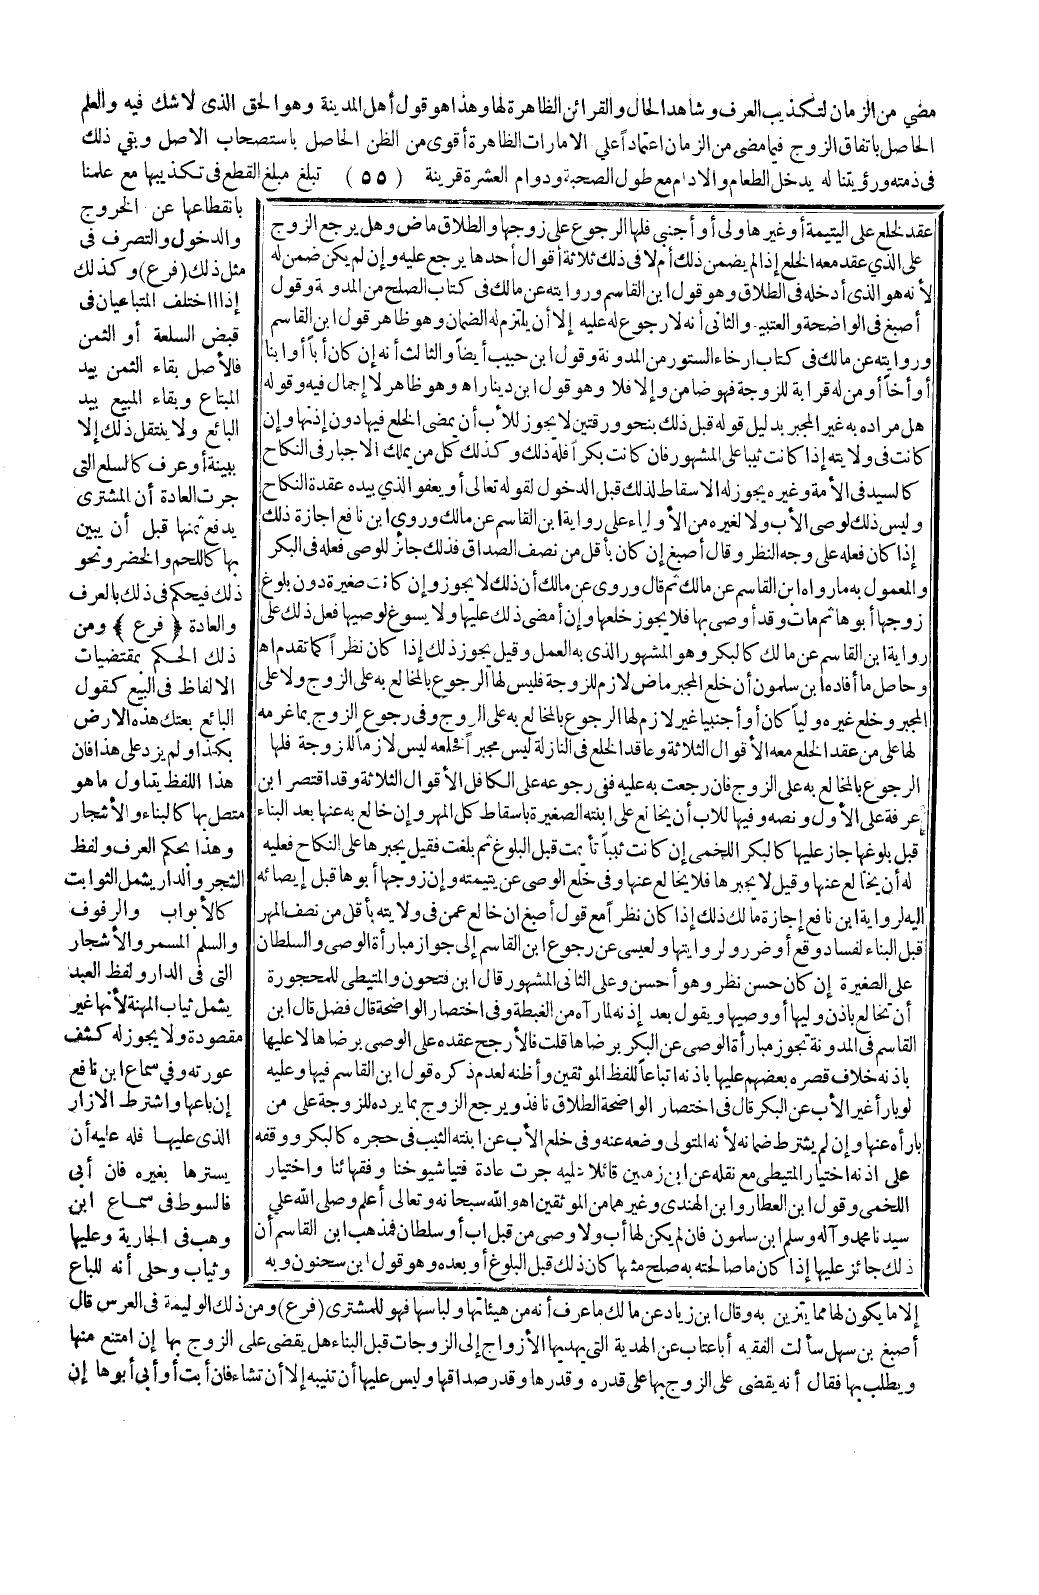 مضي من الزمان لتكذيب العرف وشاهد الحال والقرائن الظاهرة لها وهذا هو قول أهل المدينة وهو الحق الذى لا شك فيه والعلم
الحاصل باتفاق الزوج فيما مضى من الزمان اعتماداً علي الامارات الظاهرة أقوى من الظن الحاصل باستصحاب الاصل وبقي ذلك
فى ذمته ورؤيتنا له يدخل الطعام والادام مع طول الصحبة ودوام العشرة قرينة (٥٥) تبلغ مبلغ القطع فى تكذيبها مع علمنا
بانقطاعها عن الخروج
والدخول والتصرف فى
مثل ذلك (فرع) وكذلك
إذا اختلف المتبايعان فى
قبض السلعة أو الثمن
فالأصل بقاء الثمن بيد
المبتاع وبقاء المبيع بيد
البائع ولا ينتقل ذلك إلا
ببينة أو عرف كالسلع التى
جرت العادة أن المشترى
يدفع ثمنها قبل أن يبين
بها كاللحم والخضر ونحو
ذلك فيحكم فى ذلك بالعرف
والعادة ﴿ فرع ﴾ ومن
ذلك الحكم بمقتضيات
الالفاظ فى البيع كقول
البائع بعتك هذه الارض
بكذا ولم يزد على هذا فان
هذا اللفظ يتناول ما هو
متصل بها كالبناء والأشجار
وهذا بحكم العرف ولفظ
الشجر والدار يشمل الثوابت
كالأبواب والرفوف
والسلم المسمر والأشجار
التى فى الدار ولفظ العبد
يشمل ثياب المهنة لأنها غير
مقصودة ولا يجوز له كشف
عورته وفي سماع ابن نافع
إن باعها واشترط الازار
الذى عليها فله عليه أن
يسترها بغيره فان أبي
فالسوط فى سماع ابن
وهب فى الجارية وعليها
وثياب وحلى أنه للباع
عقد لخلع على اليتيمة أو غيرها ولى أو أجنبى فلها الرجوع على زوجها والطلاق ماض وهل يرجع الزوج
على الذي عقد معه الخلع إذا لم يضمن ذلك أم لا فى ذلك ثلاثة أقوال أحدها يرجع عليه وإن لم يكن ضمن له
لأنه هو الذى أدخله فى الطلاق وهو قول ابن القاسم وروايته عن مالك فى كتاب الصلح من المدونة وقول
أصبغ فى الواضحة والعتبية والثانى أنه لا رجوع له عليه إلا أن يلتزم له الضمان وهو ظاهر قول ابن القاسم
وروايته عن مالك فى كتاب ارخاء الستور من المدونة وقول ابن حبيب أيضاً والثالث أنه إن كان أباً أو ابنا
أو أخاً أو من له قرابة للزوجة فهو ضامن وإلا فلا وهو قول ابن دينار اه وهو ظاهر لا إجمال فيه وقوله
هل مراده به غير المجبر بدليل قوله قبل ذلك بنحو ورقتين لا يجوز للأب أن يمضى الخلع فيها دون إذنها وإن
كانت فى ولايته إذا كانت ثيبا على المشهور فان كانت بكراً فله ذلك وكذلك كل من يملك الاجبار فى النكاح
كالسيد فى الأمة وغيره يجوز له الاسقاط لذلك قبل الدخول لقوله تعالى أو يعفو الذي بيده عقدة النكاح
وليس ذلك لوصى الأب ولا لغيره من الأولياء على رواية ابن القاسم عن مالك وروى ابن نافع اجازة ذلك
إذا كان فعله على وجه النظر وقال أصبغ إن كان بأقل من نصف الصداق فذلك جائز للوصى فعله فى البكر
والمعمول به مارواه ابن القاسم عن مالك ثم قال وروى عن مالك أن ذلك لا يجوز وإن كانت صغيرة دون بلوغ
زوجها أبوها ثم مات وقد أوصى بها فلا يجوز خلعها وإن أمضى ذلك عليها ولا يسوغ لوصيها فعل ذلك على
رواية ابن القاسم عن مالك كالبكر وهو المشهور الذى به العمل وقيل يجوز ذلك إذا كان نظراً كما تقدم اه
وحاصل ما أفاده ابن سلمون أن خلع المجبر ماض لازم للزوجة فليس لها الرجوع بالمخالع به على الزوج ولا على
المجبر وخلع غيره ولياً كان أو أجنبيا غير لازم لها الرجوع بالمخالع به على الزوج وفى رجوع الزوج بما غرمه
لها على من عقد الخلع معه الأقوال الثلاثة وعاقد الخلع فى النازلة ليس مجبراً فخلعه ليس لازماً للزوجة فلها
الرجوع بالمخالع به على الزوج فان رجعت به عليه ففى رجوعه على الكافل الأقوال الثلاثة وقد اقتصر ابن
عرفة على الأول ونصه وفيها للاب أن يخالع على ابنته الصغيرة باسقاط كل المهر وإن خالع به عنها بعد البناء
قبل بلوغها جاز عليها كالبكر اللخمى إن كانت ثيباً تأيمت قبل البلوغ ثم بلغت فقيل يجبرها على النكاح فعليه
له أن يخالع عنها وقيل لا يجبرها فلا يخالع عنها وفى خلع الوصى عن يتيمته وإن زوجها أبوها قبل إيصائه
اليه لرواية ابن نافع إجازة مالك ذلك إذا كان نظراً مع قول أصبغ ان خالع عمن فى ولايته بأقل من نصف المهر
قبل البناء لفساد وقع أو ضرر ولروايتها ولعيسى عن رجوع ابن القاسم إلى جواز مبارأة الوصى والسلطان
على الصغيرة إن كان حسن نظر وهو أحسن وعلى الثانى المشهور قال ابن فتحون والمتيطى للمحجورة
أن تخالع باذن وليها أو وصيها ويقول بعد إذنه لما رآه من الغبطة وفى اختصار الواضحة قال فضل قال ابن
القاسم فى المدونة تجوز مبارأة الوصى عن البكر برضاها قلت فالأرجح عقده على الوصى برضاها لا عليها
باذنه خلاف قصره بعضهم عليها باذنه اتباعاً للفظ الموثقين وأظنه لعدم ذكره قول ابن القاسم فيها وعليه
لو بارأ غير الأب عن البكر قال فى اختصار الواضحة الطلاق نافذ ويرجع الزوج بما يرده للزوجة على من
بارأه عنها وإن لم يشترط ضمانه لأنه المتولى وضعه عنه وفى خلع الأب عن ابنته الثيب فى حجره كالبكر ووقفه
على اذنه اختيار المتيطى مع نقله عن ابن زمنين قائلا عليه جرت عادة فتيا شيوخنا وفقهائنا واختيار
اللخمى وقول ابن العطار وابن الهندى وغيرهما من الموثقين اه والله سبحانه وتعالى أعلم وصلى الله علي
سيدنا محمد وآله وسلم ابن سلمون فان لم يكن لها أب ولا وصى من قبل اب أو سلطان فمذهب ابن القاسم أن
ذلك جائز عليها إذا كان ما صالحته به صلح مثلها كان ذلك قبل البلوغ أو بعده وهو قول ابن سحنون وبه
إلا ما يكون لها مما يتزين به وقال ابن زياد عن مالك ما عرف أنه من هيئاتها ولباسها فهو للمشترى (فرع) ومن ذلك الوليمة فى العرس قال
أصبغ بن سهل سألت الفقيه أبا عتاب عن الهدية التى يهديها الأزواج إلى الزوجات قبل البناء هل يقضى على الزوج بها إن امتنع منها
ويطلب بها فقال أنه يقضى على الزوج بها على قدره وقدرها وقدر صداقها وليس عليها أن تثيبه إلا أن تشاء فان أبت أو أبي أبوها إن